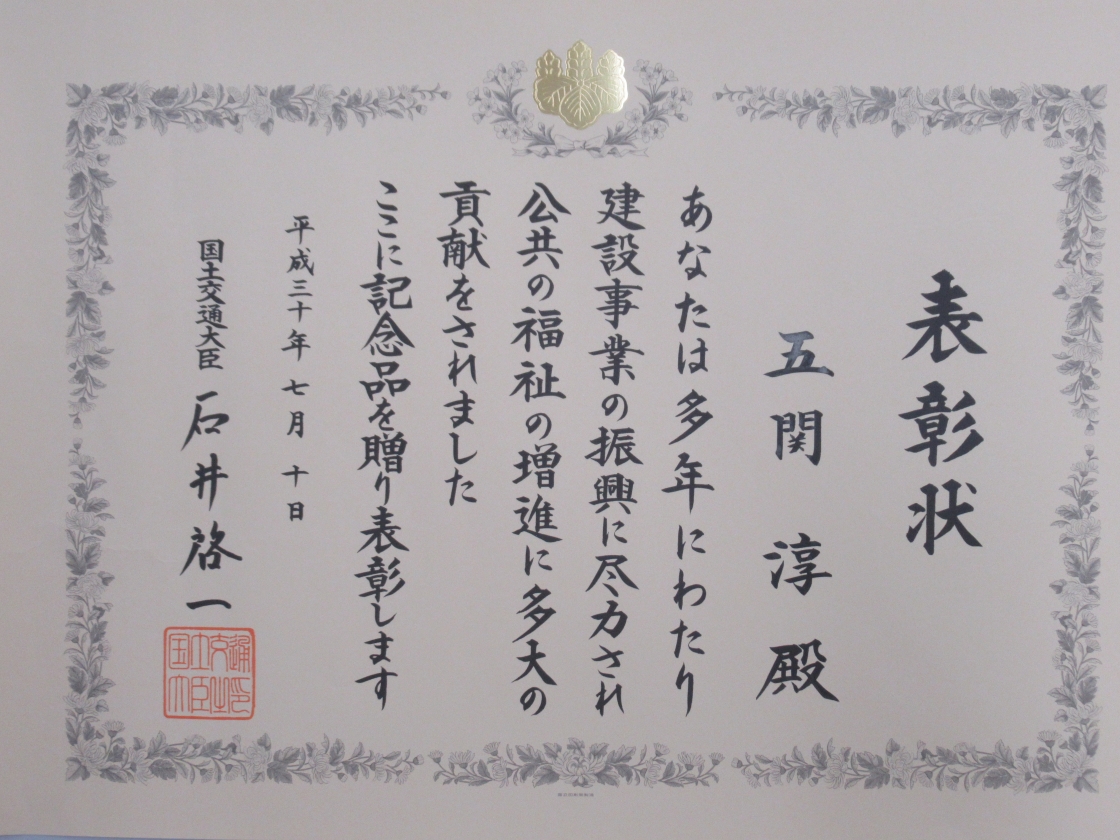 表彰状
五関 淳 殿
あなたは多年にわたり
建設事業の振興に尽力され
公共の福祉の増進に多大の
貢献をされました
ここに記念品を贈り表彰します
平成三十年七月十日
国土交通大臣 石井啓一
国土交通大臣之印